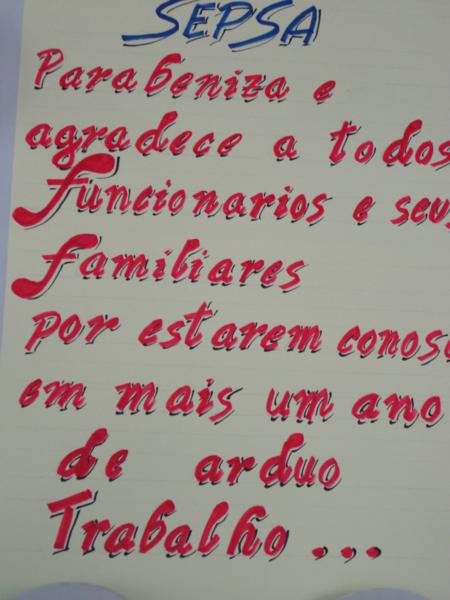 SEPSA
Parabeniza e
agradece a todos
Funcionarios e seus
familiares
por estarem conosc
em mais um ano
de arduo
Trabalho ...